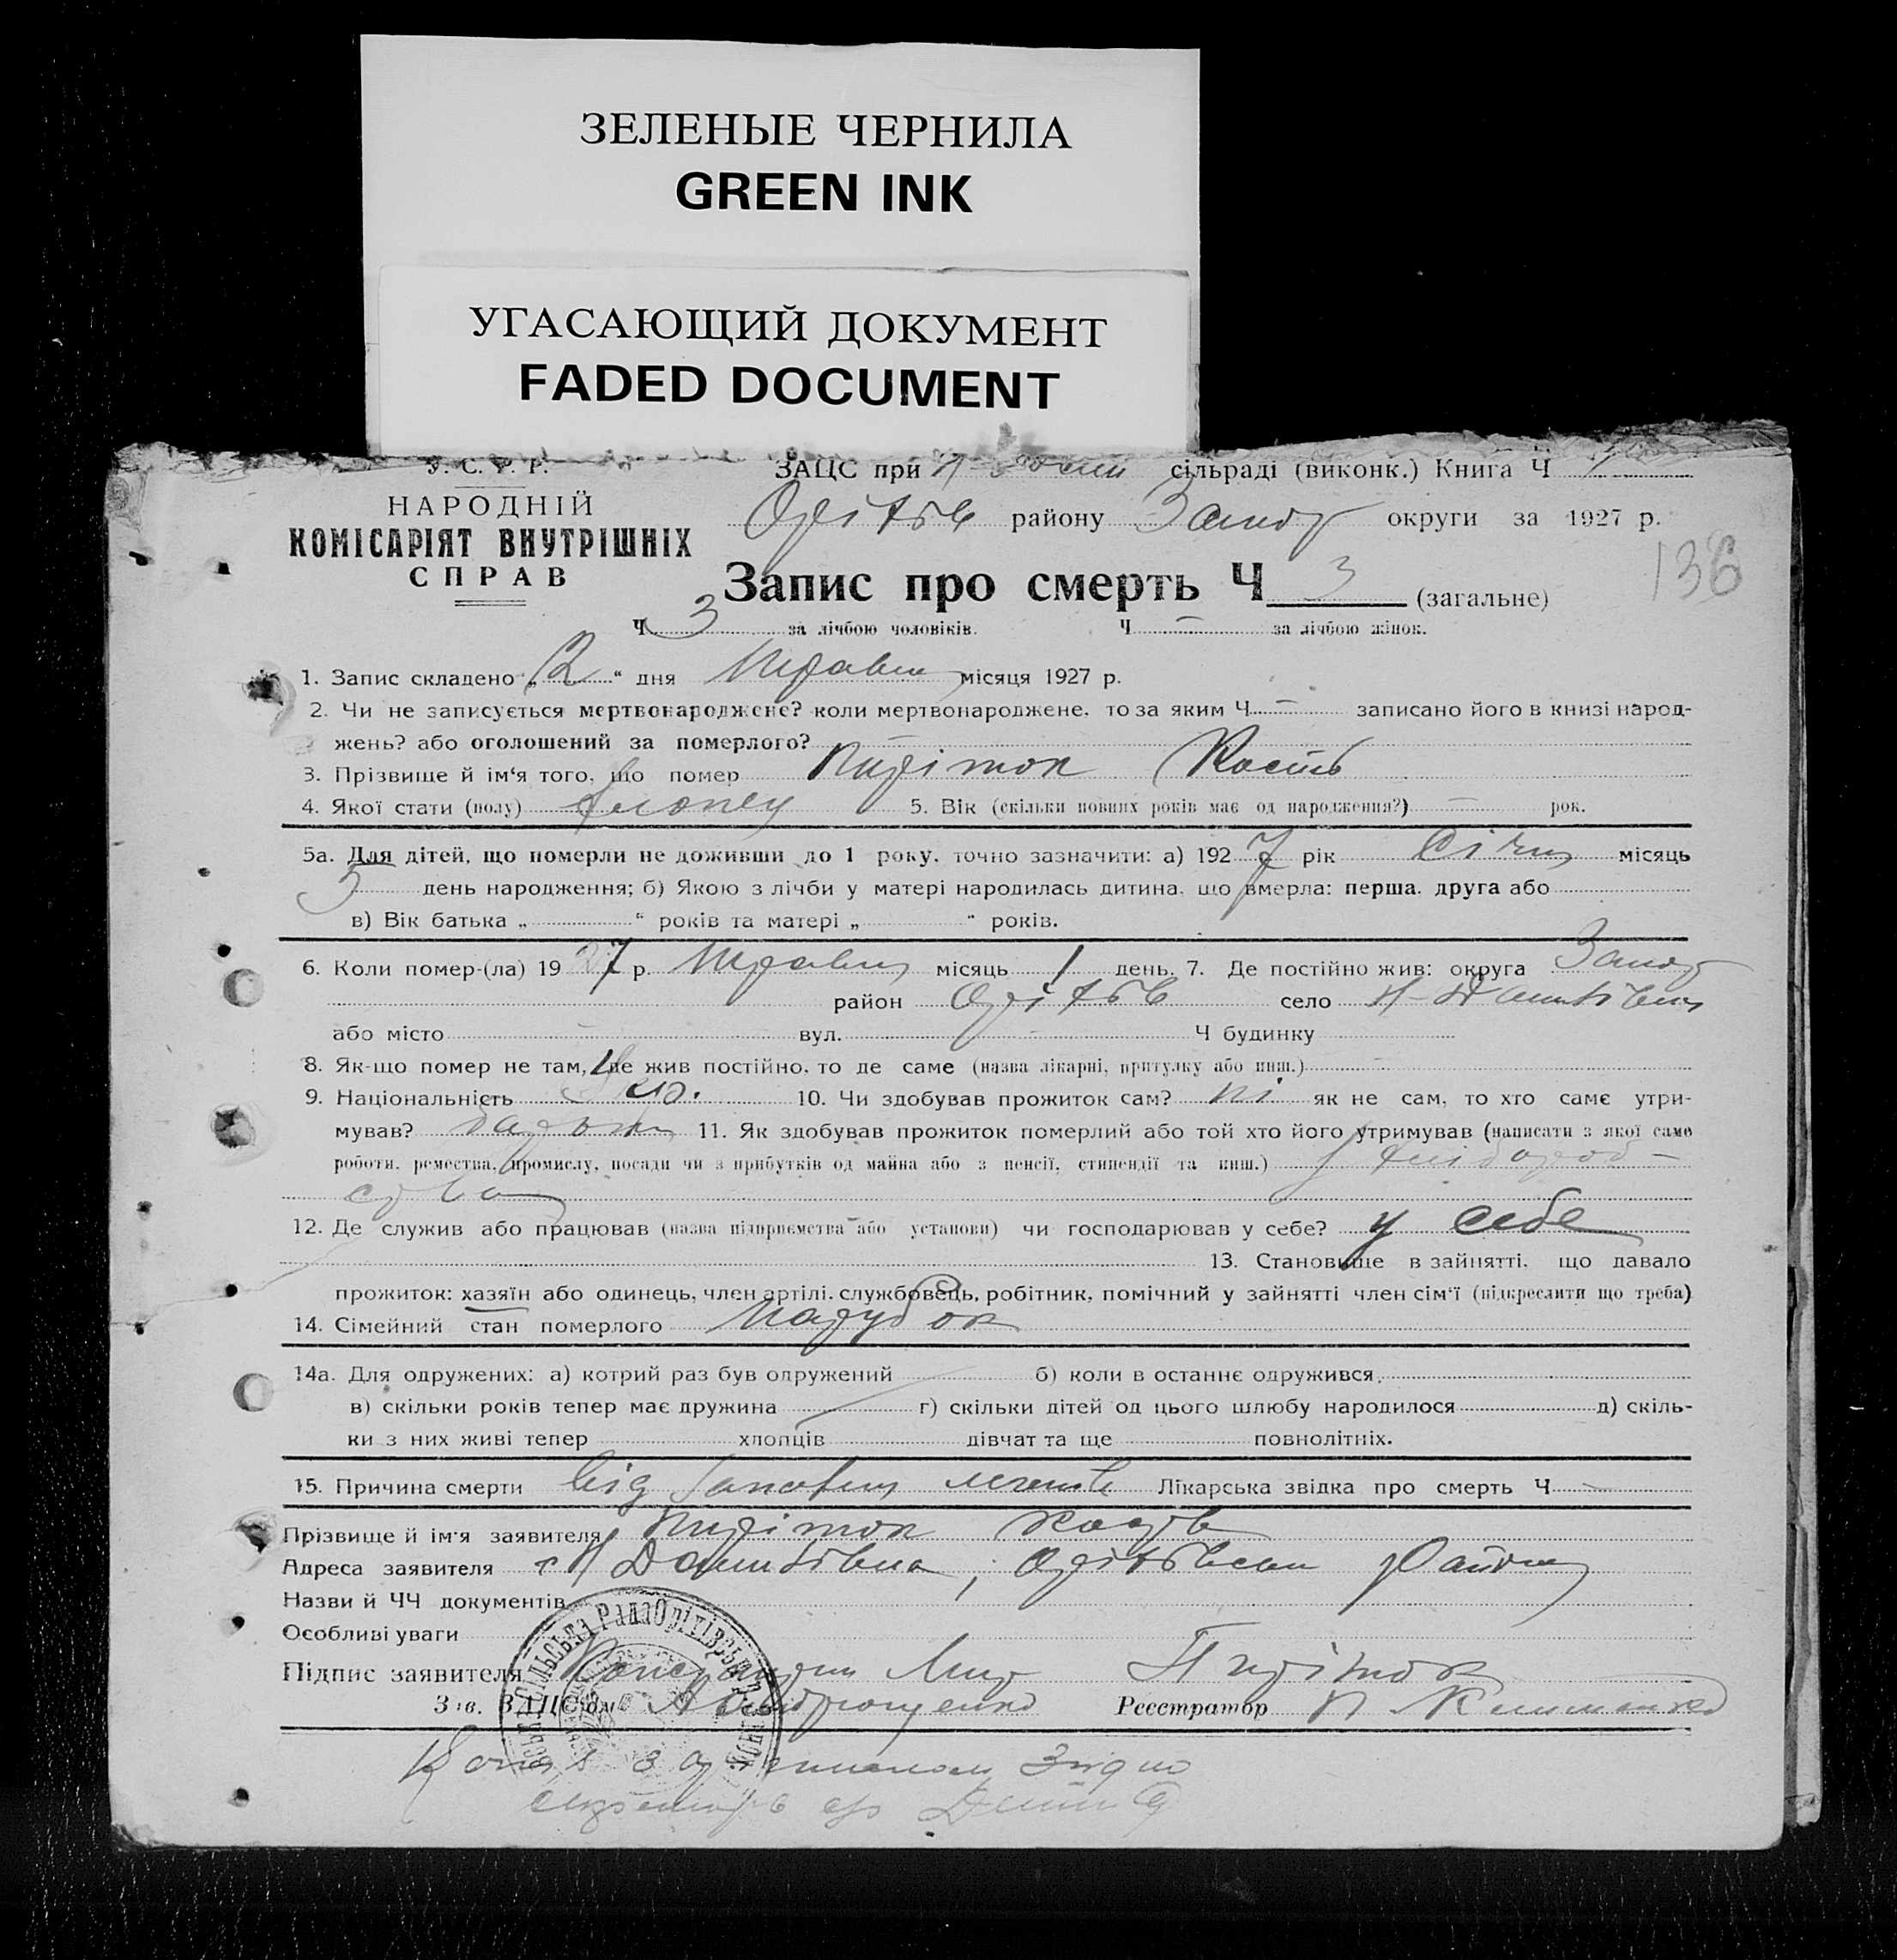 ЗЕЛЕНЫЕ ЧЕРНИЛА
GREEN INK
УГАСАЮЩИЙ ДОКУМЕНТ
FADED DOCUMENT
У. С. Р. Р.
ЗАЦС при сільраді (виконк.) Книга Ч
НАРОДНІЙ
КОМІСАРІЯТ ВНУТРІШНІХ
СПРАВ
району Запор округи за 1927 р.
136
Запис про смерть Ч 3 (загальне)
Ч 3 за лічбою чоловіків. Ч — за лічбою жінок.
1. Запис складено „ 2 “ дня Травня місяця 1927 р.
2. Чи не записується мертвонароджене? коли мертвонароджене, то за яким Ч — записано його в книзі народ-
жень? або оголошений за померлого? —
3. Прізвище й ім‘я того, що помер Кирішок Кость
4. Якої стати (полу) 5. Вік (скільки повних років має од народження?) — рок.
5а. Для дітей, що померли не доживши до 1 року, точно зазначити: а) 1927 рік Січня місяць
3 день народження; б) Якою з лічби у матері народилась дитина, що вмерла: перша, друга або
в) Вік батька „ “ років та матері „ “ років.
6. Коли помер-(ла) 1927 р. Травня місяць 1 день. 7. Де постійно жив: округа Запор
район село
або місто вул. Ч будинку
8. Як-що помер не там, де жив постійно, то де саме (назва лікарні, притулку або инш.)
9. Національність Укр. 10. Чи здобував прожиток сам? ні як не сам, то хто саме утри-
мував? батьки 11. Як здобував прожиток померлий або той хто його утримував (написати з якої саме
роботи, ремества, промислу, посади чи з прибутків од майна або з пенсії, стипендії та инш.) з хлібороб-
ства
12. Де служив або працював (назва підприємства або установи) чи господарював у себе? у себе
13. Становище в зайнятті, що давало
прожиток: хазяїн або одинець, член артілі, службовець, робітник, помічний у зайнятті член сім‘ї (підкреслити що треба)
14. Сімейний стан померлого парубок
14а. Для одружених: а) котрий раз був одружений б) коли в останнє одружився
в) скільки років тепер має дружина г) скільки дітей од цього шлюбу народилося д) скіль-
ки з них живі тепер хлопців дівчат та ще повнолітніх.
15. Причина смерти від запалення легенів Лікарська звідка про смерть Ч —
Прізвище й ім‘я заявителя Кирішок
Адреса заявителя с. Орітівськ Району
Назви й ЧЧ документів
Особливі уваги
Підпис заявителя
Зав. ЗАЦС‘ом Реєстратор
Копія з оригіналом згідно